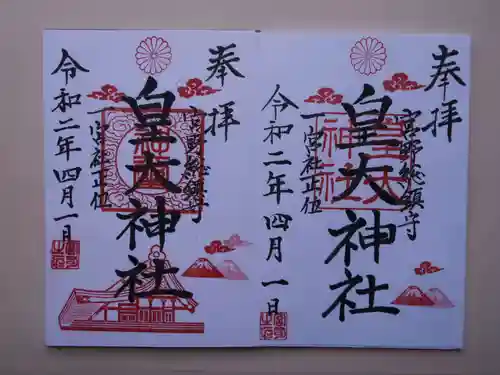 奉拝
宮郷総鎮守
皇大神社
一宮社正位
令和二年四月一日
奉拝
宮郷総鎮守
皇大神社
一宮社正位
令和二年四月一日